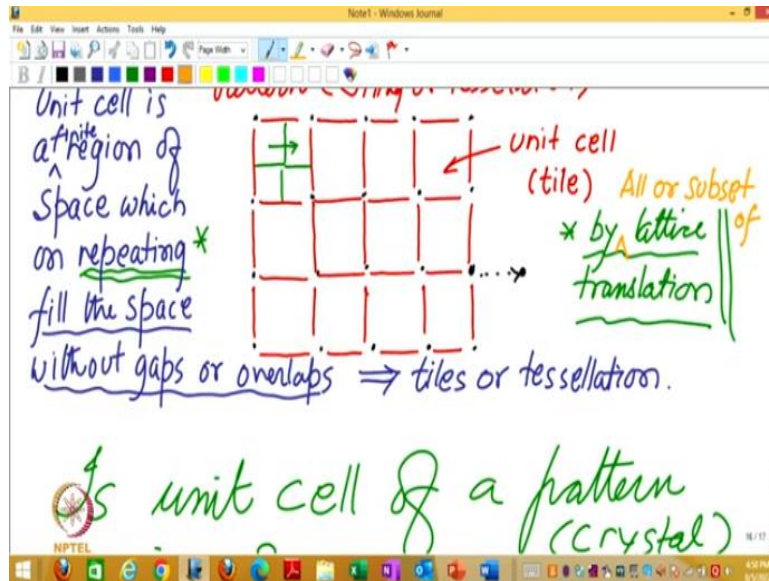 Note1 - Windows Journal
File Edit View Insert Actions Tools Help
Page Width
B I
Unit cell is
a finite region of
Space which
on repeating *
fill the space
without gaps or overlaps ⇒ tiles or tessellation.
unit cell
(tile)
All or subset of
* by lattice
translation
Is unit cell of a pattern
(Crystal)
NPTEL
16/17
4:50 PM